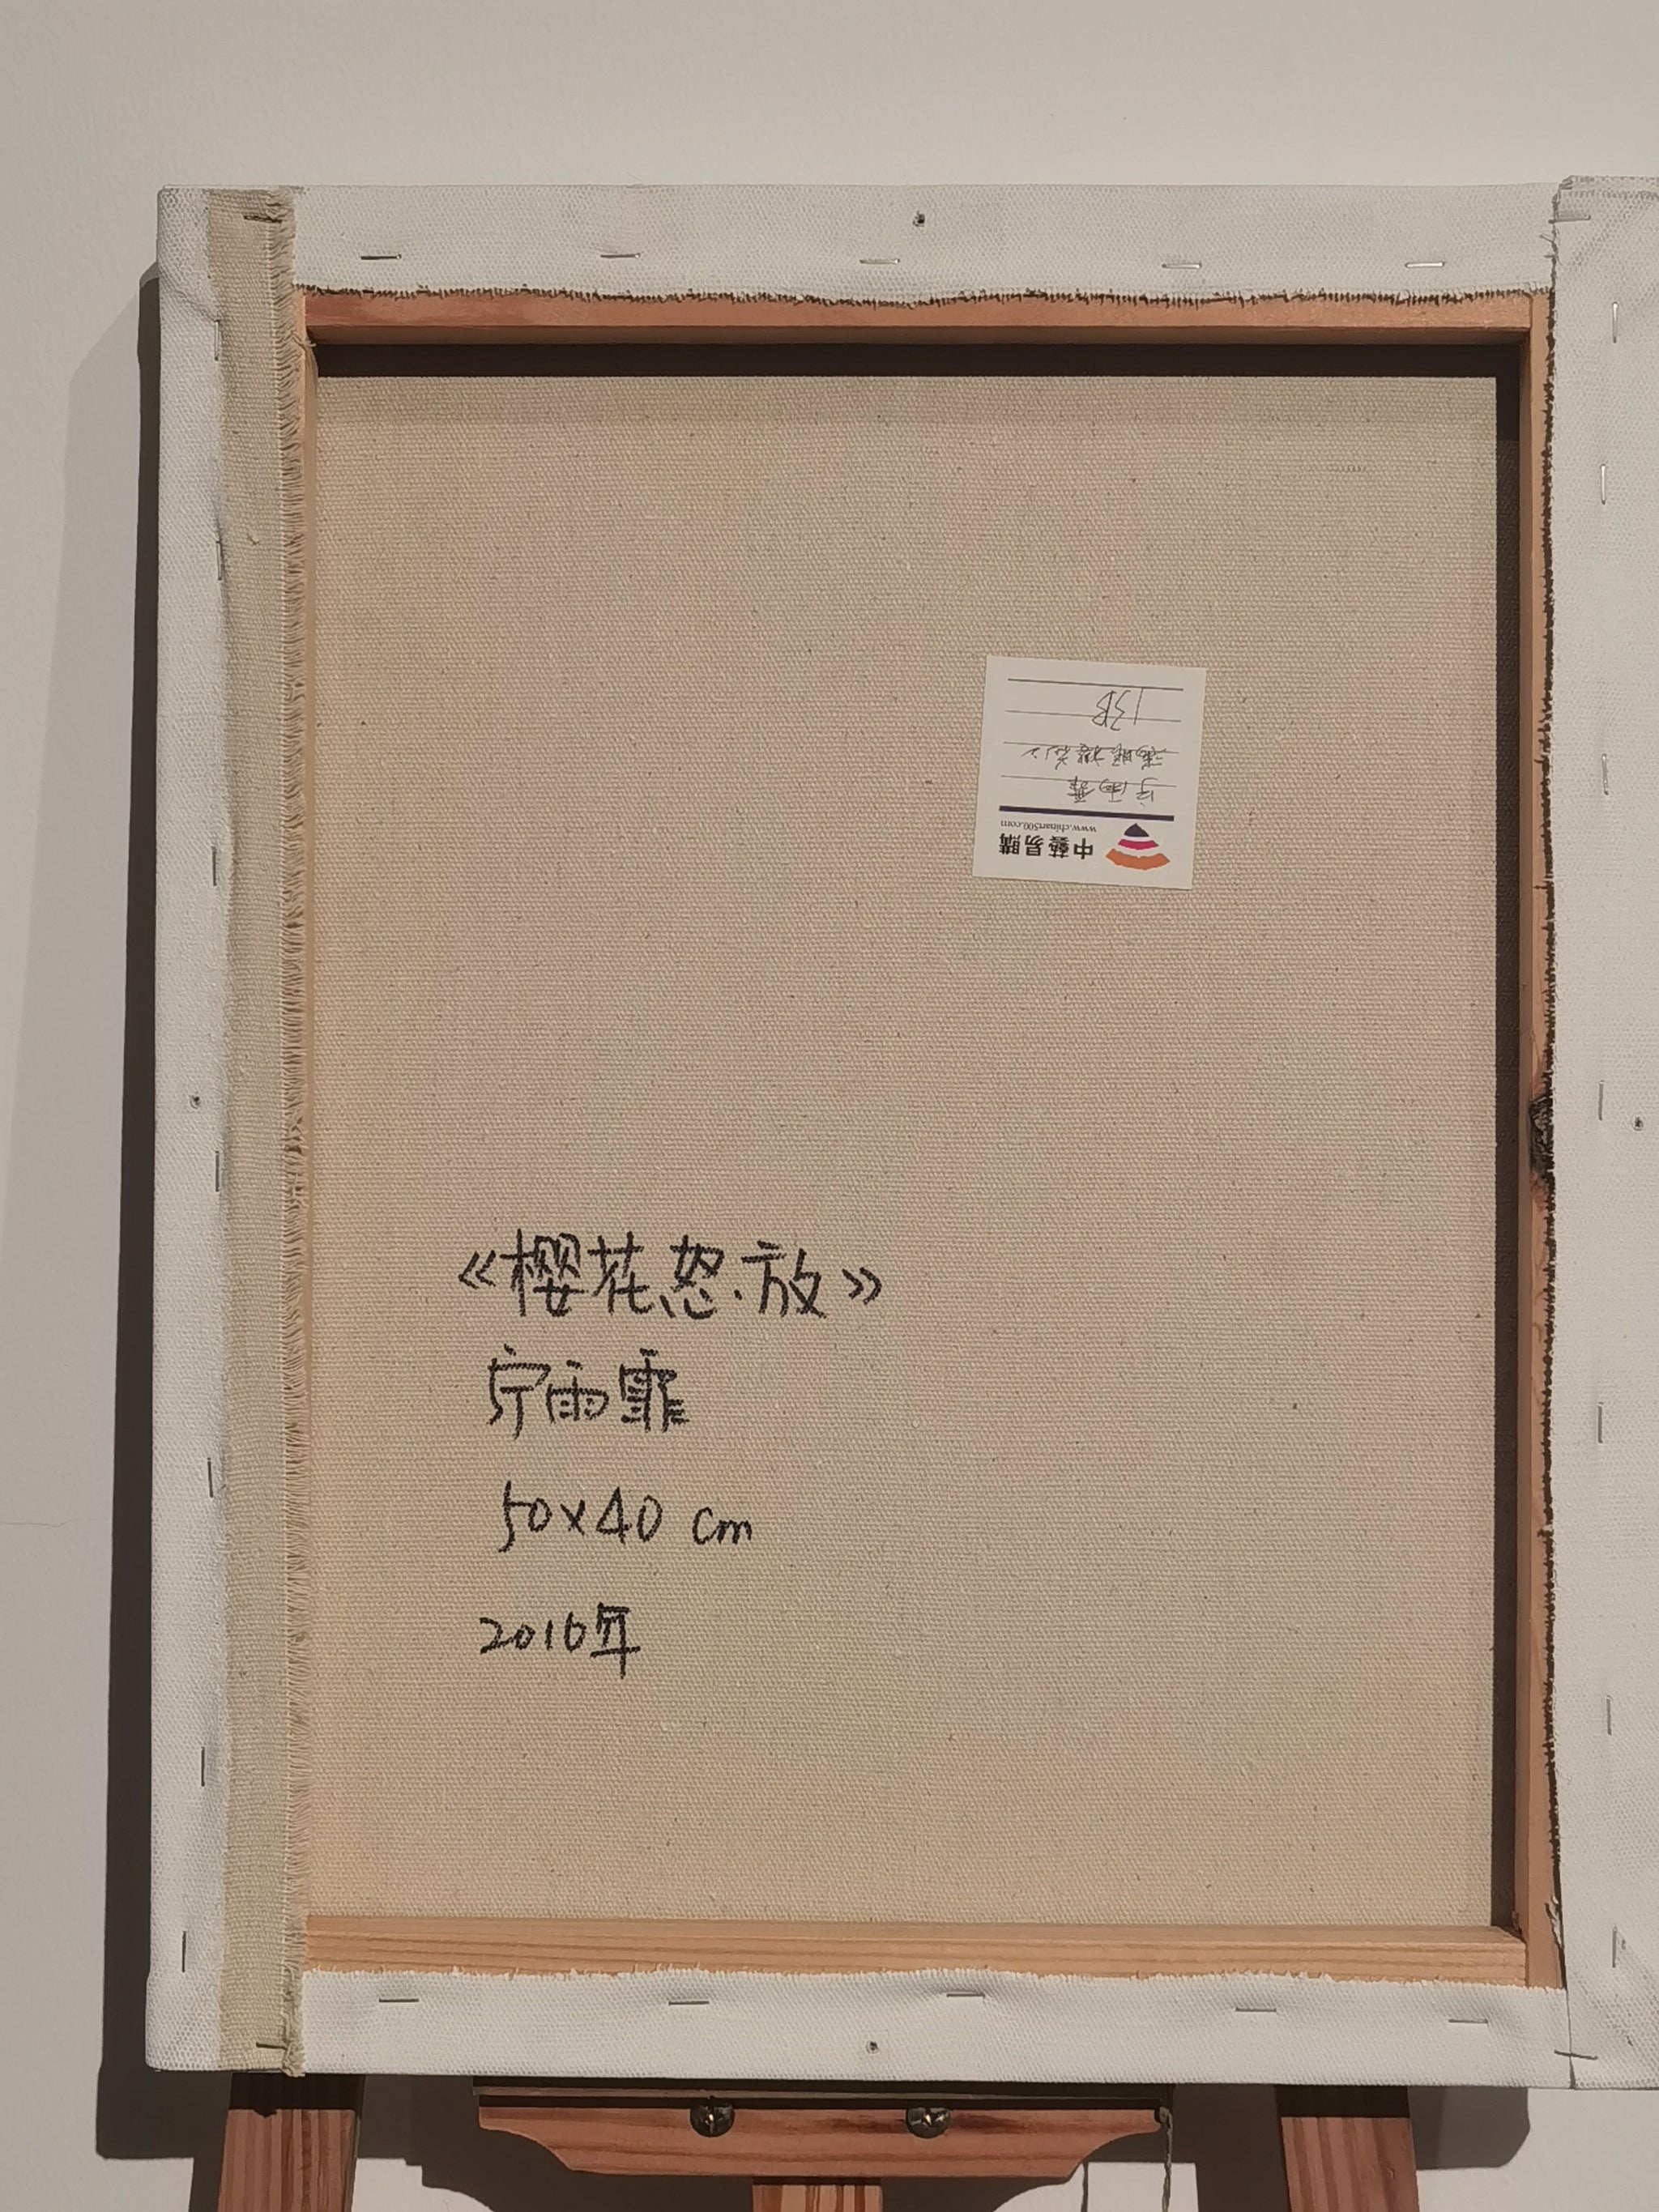 中藝易購
www.chinart500.com
宁雨霏
满眼樱花
13B
《樱花怒放》
宁雨霏
50×40 cm
2016年